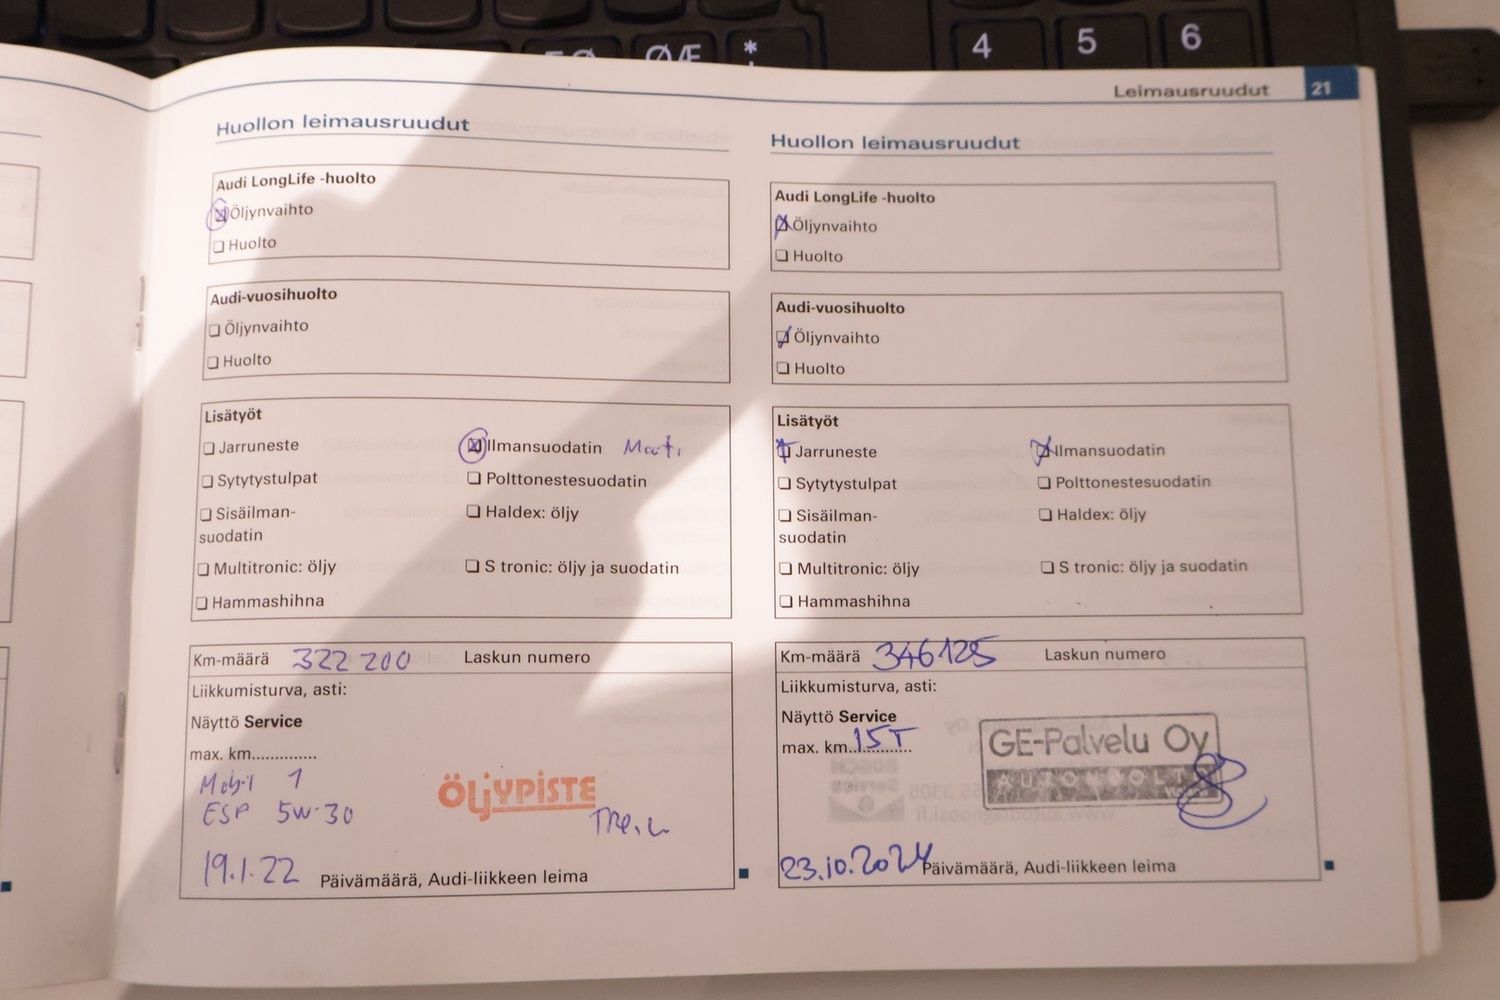 ØÆ
*
4 5 6
Leimausruudut 21
Huollon leimausruudut
Audi LongLife -huolto
Öljynvaihto
Huolto
Audi-vuosihuolto
Öljynvaihto
Huolto
Lisätyöt
Jarruneste
Ilmansuodatin
Sytytystulpat
Polttonestesuodatin
Sisäilman-
suodatin
Haldex: öljy
Multitronic: öljy
S tronic: öljy ja suodatin
Hammashihna
Km-määrä 322 200 Laskun numero
Liikkumisturva, asti:
Näyttö Service
max. km..............
Mobil 1
ESP 5W-30
ÖLJYPISTE
19.1.22 Päivämäärä, Audi-liikkeen leima
Huollon leimausruudut
Audi LongLife -huolto
Öljynvaihto
Huolto
Audi-vuosihuolto
Öljynvaihto
Huolto
Lisätyöt
Jarruneste
Ilmansuodatin
Sytytystulpat
Polttonestesuodatin
Sisäilman-
suodatin
Haldex: öljy
Multitronic: öljy
S tronic: öljy ja suodatin
Hammashihna
Km-määrä 346125 Laskun numero
Liikkumisturva, asti:
Näyttö Service
max. km..15T..........
GE-Palvelu Oy
23.10.2024 Päivämäärä, Audi-liikkeen leima